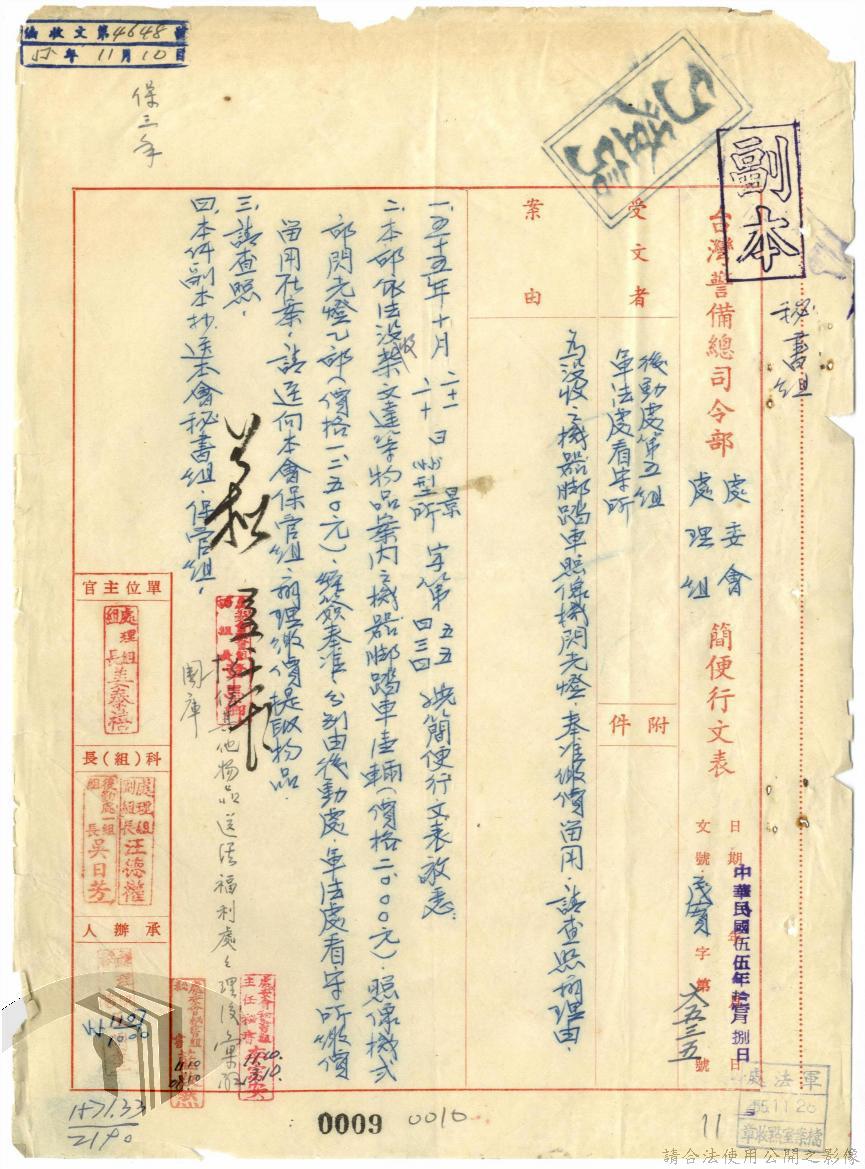 收文第4648號
55年11月10日
保三年
副本
秘書組
台灣警備總司令部
處委會
處理組
簡便行文表
日期
中華民國伍伍年拾壹月捌日
文號
字第六五三五號
受文者
後勤處第五組
軍法處看守所
附件
案由
為沒收之機器脚踏車照像機閃光燈，奉准繳價留用，請查照辦理由，
一、五十五年十月
二十二
二十
日
字第
五五
四三四
號簡便行文表敬悉：
二、本部依法沒收葉文達等物品案內之機器脚踏車壹輛(價格二、○○○元)，照像機弍
部閃光燈乙部(價格一、二五○元)，經簽奉准，分別由後勤處，軍法處看守所繳價
留用在案，請逕向本會保官組辦理繳價提取物品。
三、請查照。
四、本件副本抄送本會秘書組，保官組，
其他物品送法福利處處理後彙解
國庫
單位主官
處理組
組長
科(組)長
處理組
副組長汪德權
後勤處一組
組長吳日芳
承辦人
1107
1000
處委會秘書組
主任秘書
11.10.
處委會秘書組
1110
1571.33
2190
0009
0010
11
軍法處
55.11.20
檔案室點收章
請合法使用公開之影像